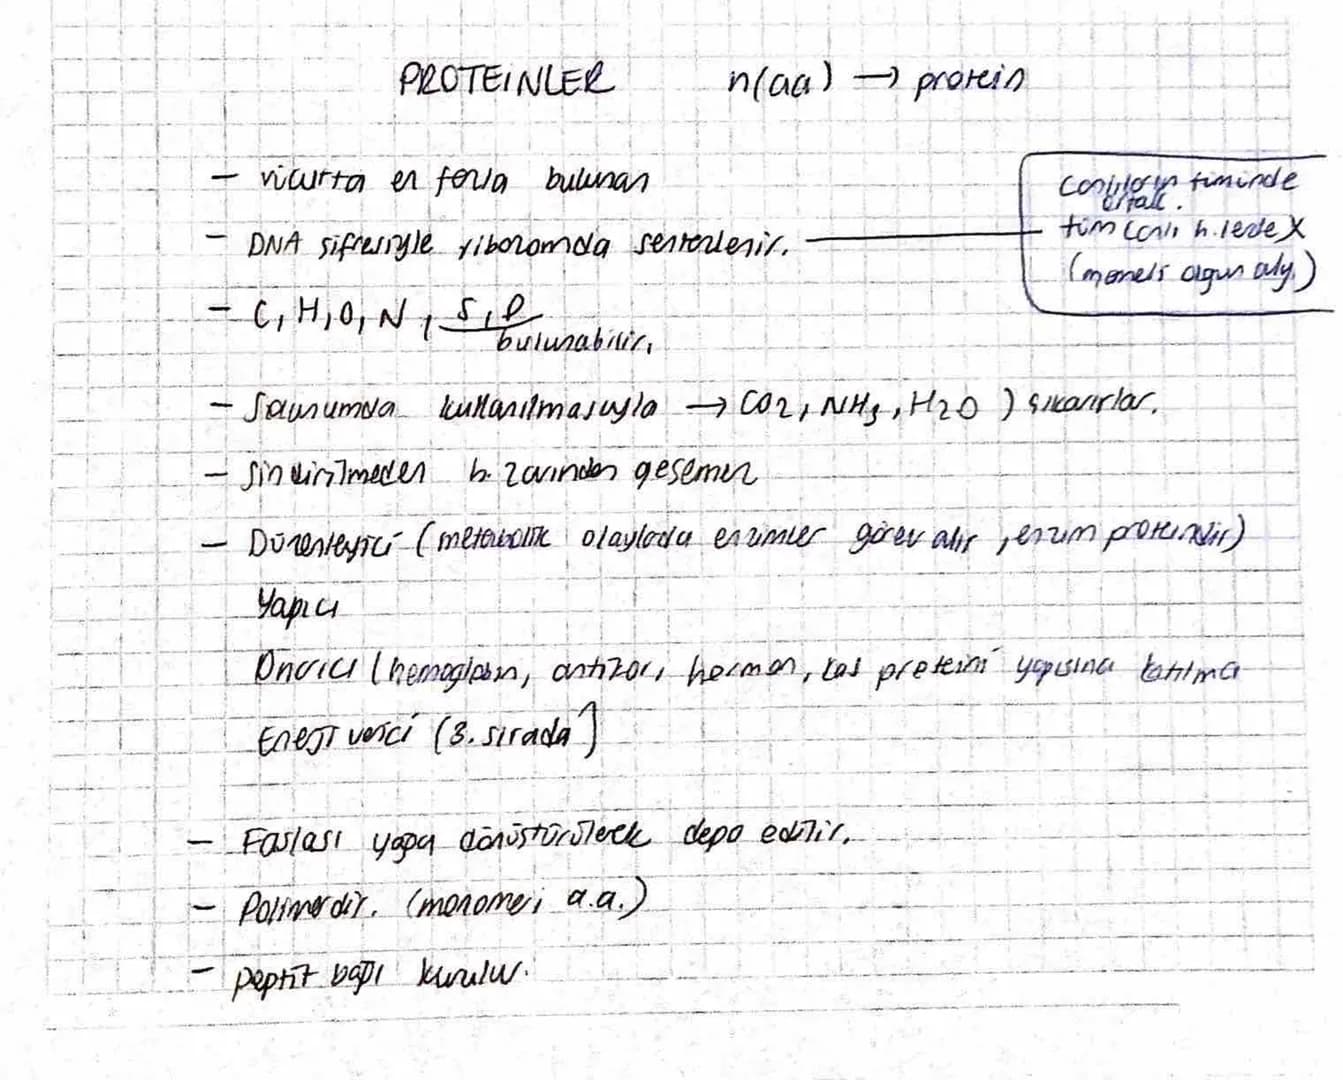 PROTEİNLER n(aa) → protein
- vücutta en fazla bulunan
- DNA şifresiyle ribozomda sentezlenir.
Canlıların tümünde
ortak.
tüm canlı h.lerde X
(memeli olgun aly.)
- C, H, O, N, S, P
bulunabilir.
- Solunumda kullanılmasıyla → CO2, NH3, H2O ) çıkarırlar.
- Sindirilmeden h. zarından geçemez
- Düzenleyici (metabolik olaylarda enzimler görev alır, enzim proteindir)
Yapıcı
Onarıcı (hemoglobin, antikor, hormon, kas proteini yapısına katılma
Enerji verici (3. sırada)
- Fazlası yağa dönüştürülerek depo edilir.
- Polimerdir. (monomeri a.a.)
- peptit bağı kurulur.